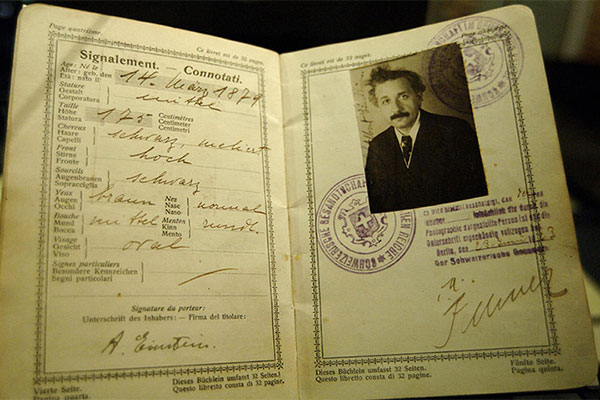 Page quatrième
Ce livret est de 32 pages.
Signalement. — Connotati.
Age: Né le
Alter: geb. den
Età: nato il
14. März 1879
Stature
Gestalt
Corporatura
mittel
Taille
Höhe
Statura
175
Centimètres
Centimeter
Centimetri
Cheveux
Haare
Capelli
schwarz, meliert
Front
Stirne
Fronte
hoch
Sourcils
Augenbrauen
Sopracciglia
schwarz
Yeux
Augen
Occhi
braun
Nez
Nase
Naso
normal
Bouche
Mund
Bocca
mittel
Menton
Kinn
Mento
rund
Visage
Gesicht
Viso
oval
Signes particuliers
Besondere Kennzeichen
Segni particolari
Signature du porteur:
Unterschrift des Inhabers: — Firma del titolare:
A. Einstein.
Dieses Büchlein umfasst 32 Seiten.
Vierte Seite.
Questo libretto consta di 32 pagine.
Pagina quarta.
Ce livret est de 32 pages.
SCHWEIZERISCHE GESANDTSCHAFT
Photographie
Unterschrift eigenhändig vollzogen
Berlin, den
Der Schweizerische
Dieses Büchlein umfasst 32 Seiten.
Fünfte Seite.
Questo libretto consta di 32 pagine.
Pagina quinta.